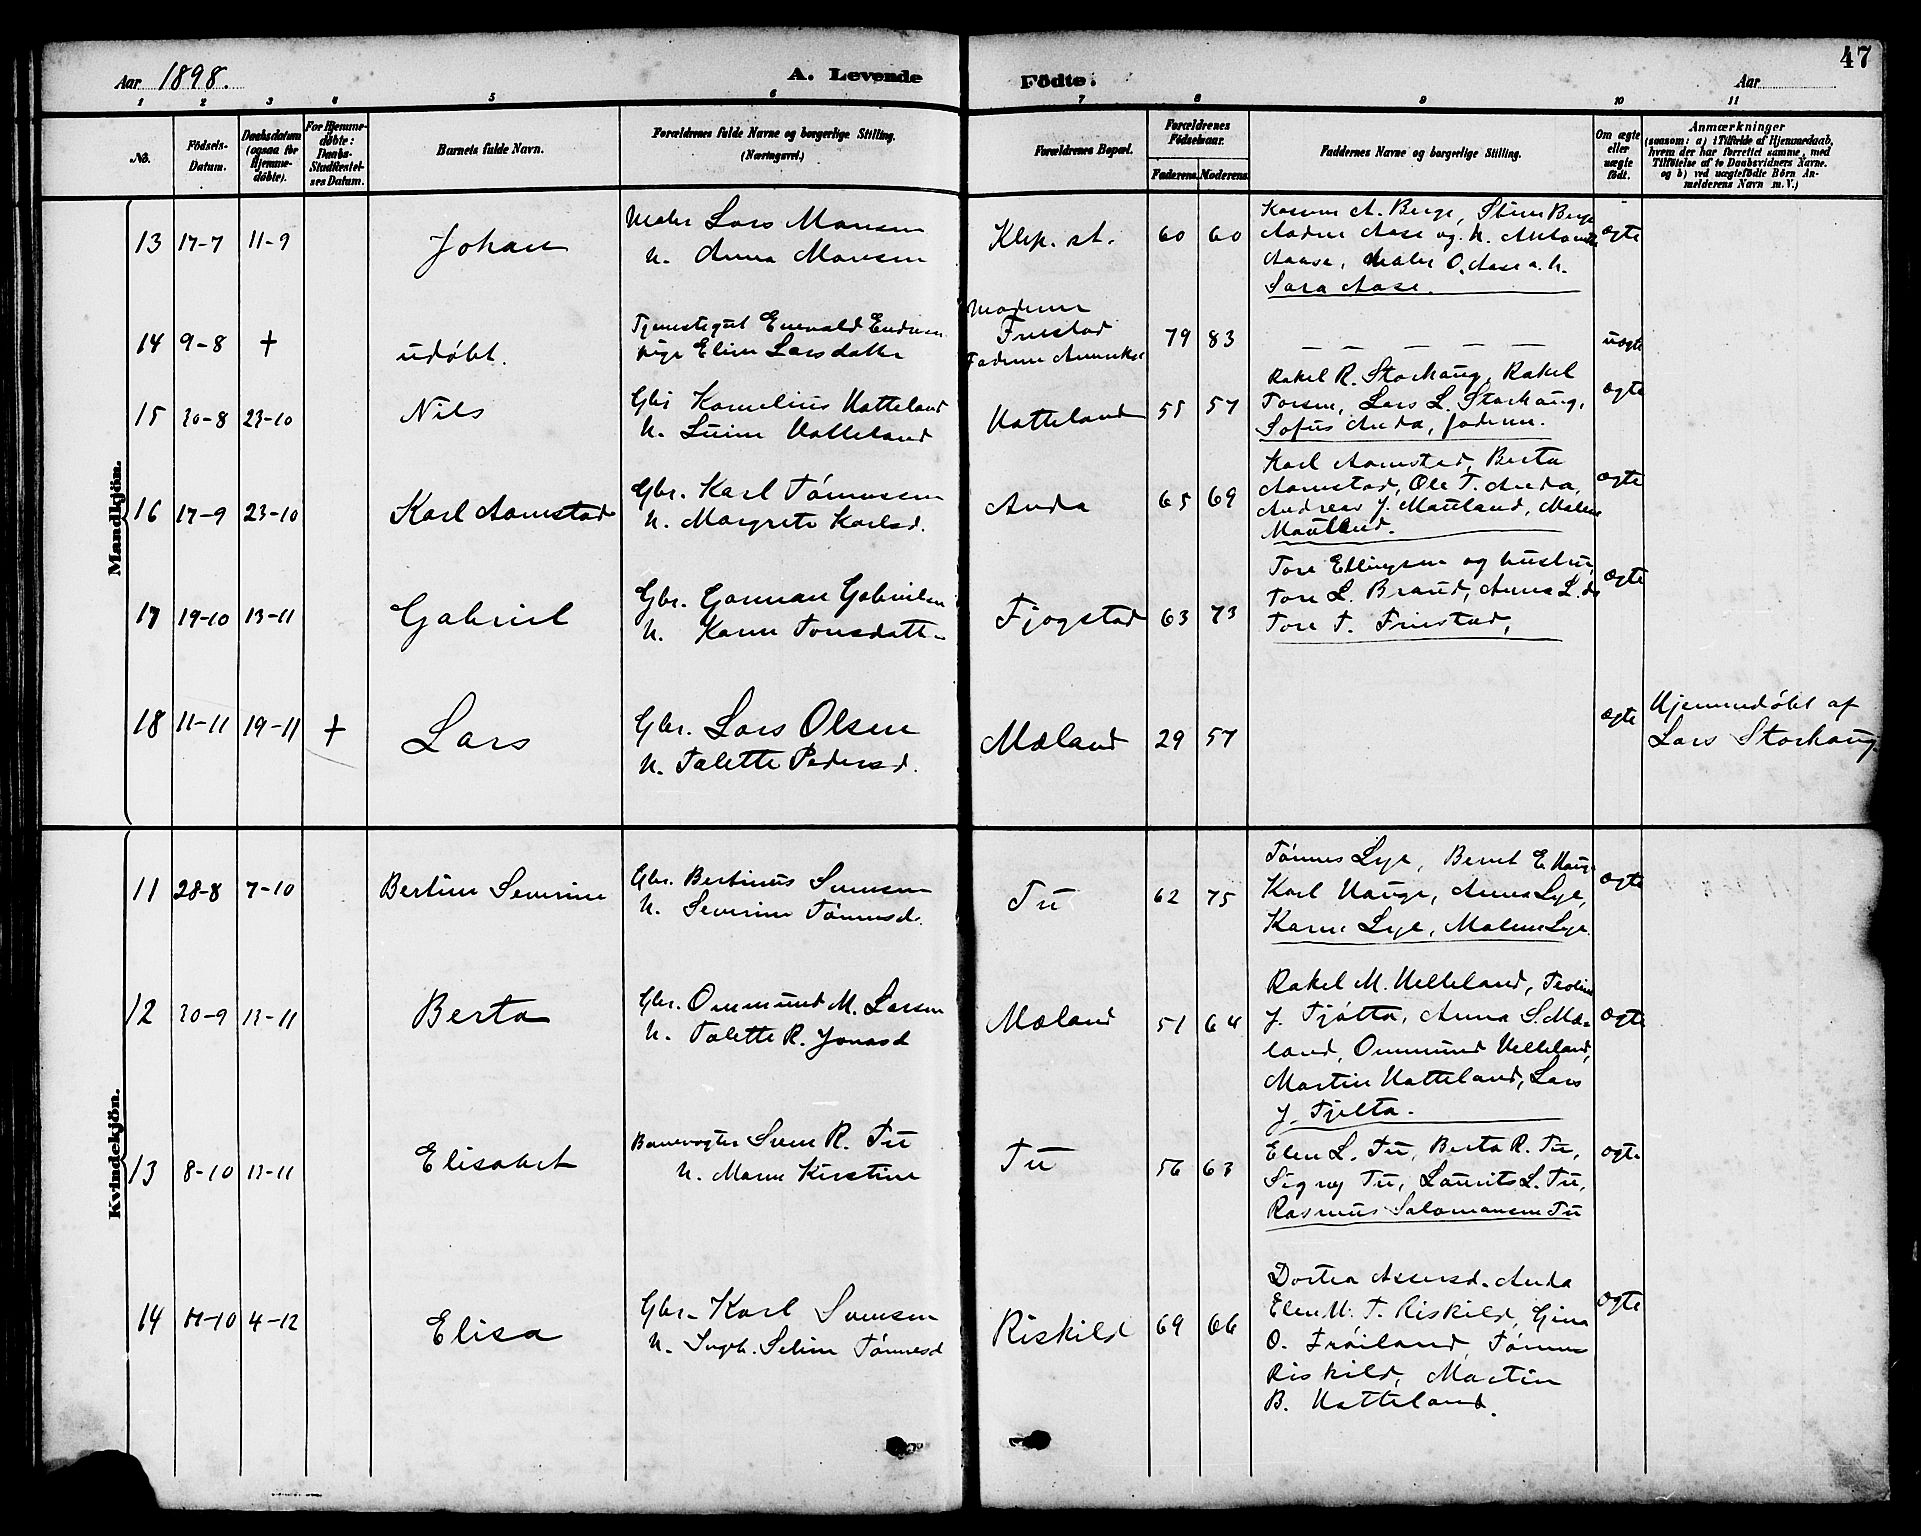 47
Aar 1898.
A. Levende
Födte.
Aar
1 2 3 4 5 6 7 8 9 10 11
No.
Födsels-
Datum.
Daabsdatum
(ogsaa for
Hjemme-
döbte).
For Hjemme-
döbte:
Daabs-
Stadfæstel-
ses Datum.
Barnets fulde Navn.
Forældrenes fulde Navne og borgerlige Stilling.
(Næringsvei.)
Forældrenes Bopæl.
Forældrenes
Födselsaar.
Faderens. Moderens.
Faddernes Navne og borgerlige Stilling.
Om ægte
eller
uægte
födt.
Anmærkninger
(saasom: a) i Tilfælde af Hjemmedaab,
hvem der har forrettet samme, med
Tilföielse af to Daabsvidners Navne.
og b) ved uægtefödte Börn An-
melderens Navn m. V.)
Mandkjön.
13 17-7 11-9
Johan
Maler Lars Monsen
H. Anna Monsen
Klep. st.
60 60
A. Berge,
Aase og H.
Aase, Maler O. Aase o. h.
Sara Aase.
ægte
14 9-8 +
udøbt.
Tjenestegut Enevald
pige Elen Larsdatter
Moderen
Friestad
Faderen
79 83
— — — — —
uægte
15 30-8 23-10
Nils
Gbr Kornelius Hatteland
H. Hatteland
Hatteland
55 57
Rakel R. Storhaug, Rakel
Lars L. Storhaug,
Sofus Anda, faderen.
ægte
16 17-9 23-10
Karl Aamstad
Gbr. Karl Tønnesen
H. Margrete Karlsd.
Anda
65 69
Karl Aamstad, Berta
Aamstad, Ole T. Anda,
Andreas J. Mauland, Malene
Mauland.
ægte
17 19-10 13-11
Gabriel
Gbr. Gabrielsen
H. Karen Toresdatt-
Fjogstad
63 73
Tore Ellingsen og hustru,
Tore L. Braud, Anna L.
Tore T. Friestad,
ægte
18 11-11 19-11 +
Lars
Gbr. Lars Olsen
H. Talette Pedersd.
Mæland
29 57
ægte
Hjemmedøbt af
Lars Storhaug
Kvindekjön.
11 28-8 7-10
Bertine Severine
Gbr. Bertinus Svensen
H. Severine Tønnesd.
Tu
62 75
Tønnes Lye, Bernt E. Hauge
Karl Hauge, Anna Lye,
Karen Lye, Malene Lye.
ægte
12 30-9 13-11
Berta
Gbr. Ommund M. Larsen
H. Talette R. Jonasd
Mæland
51 64
Rakel M. Helleland,
J. Tjøtta, Anna S. Mæ-
land, Ommund Helleland,
Martin Hatteland, Lars
J. Tjelta.
ægte
13 8-10 13-11
Elisabet
Banevogter Sven R. Tu
H. Maren Kirstine
Tu
56 63
Elen L. Tu, Berta R. Tu,
Signy Tu, Laurits L. Tu,
Rasmus Salomonsen Tu
ægte
14 11-10 4-12
Elisa
Gbr. Karl Svensen
H. Ingb. Seline Tønnesd
Riskild
69 66
Dortea Assersd. Anda
Elen M. T. Riskild, Gina
O. Frøiland, Tønnes
Riskild, Martin
B. Hatteland.
ægte